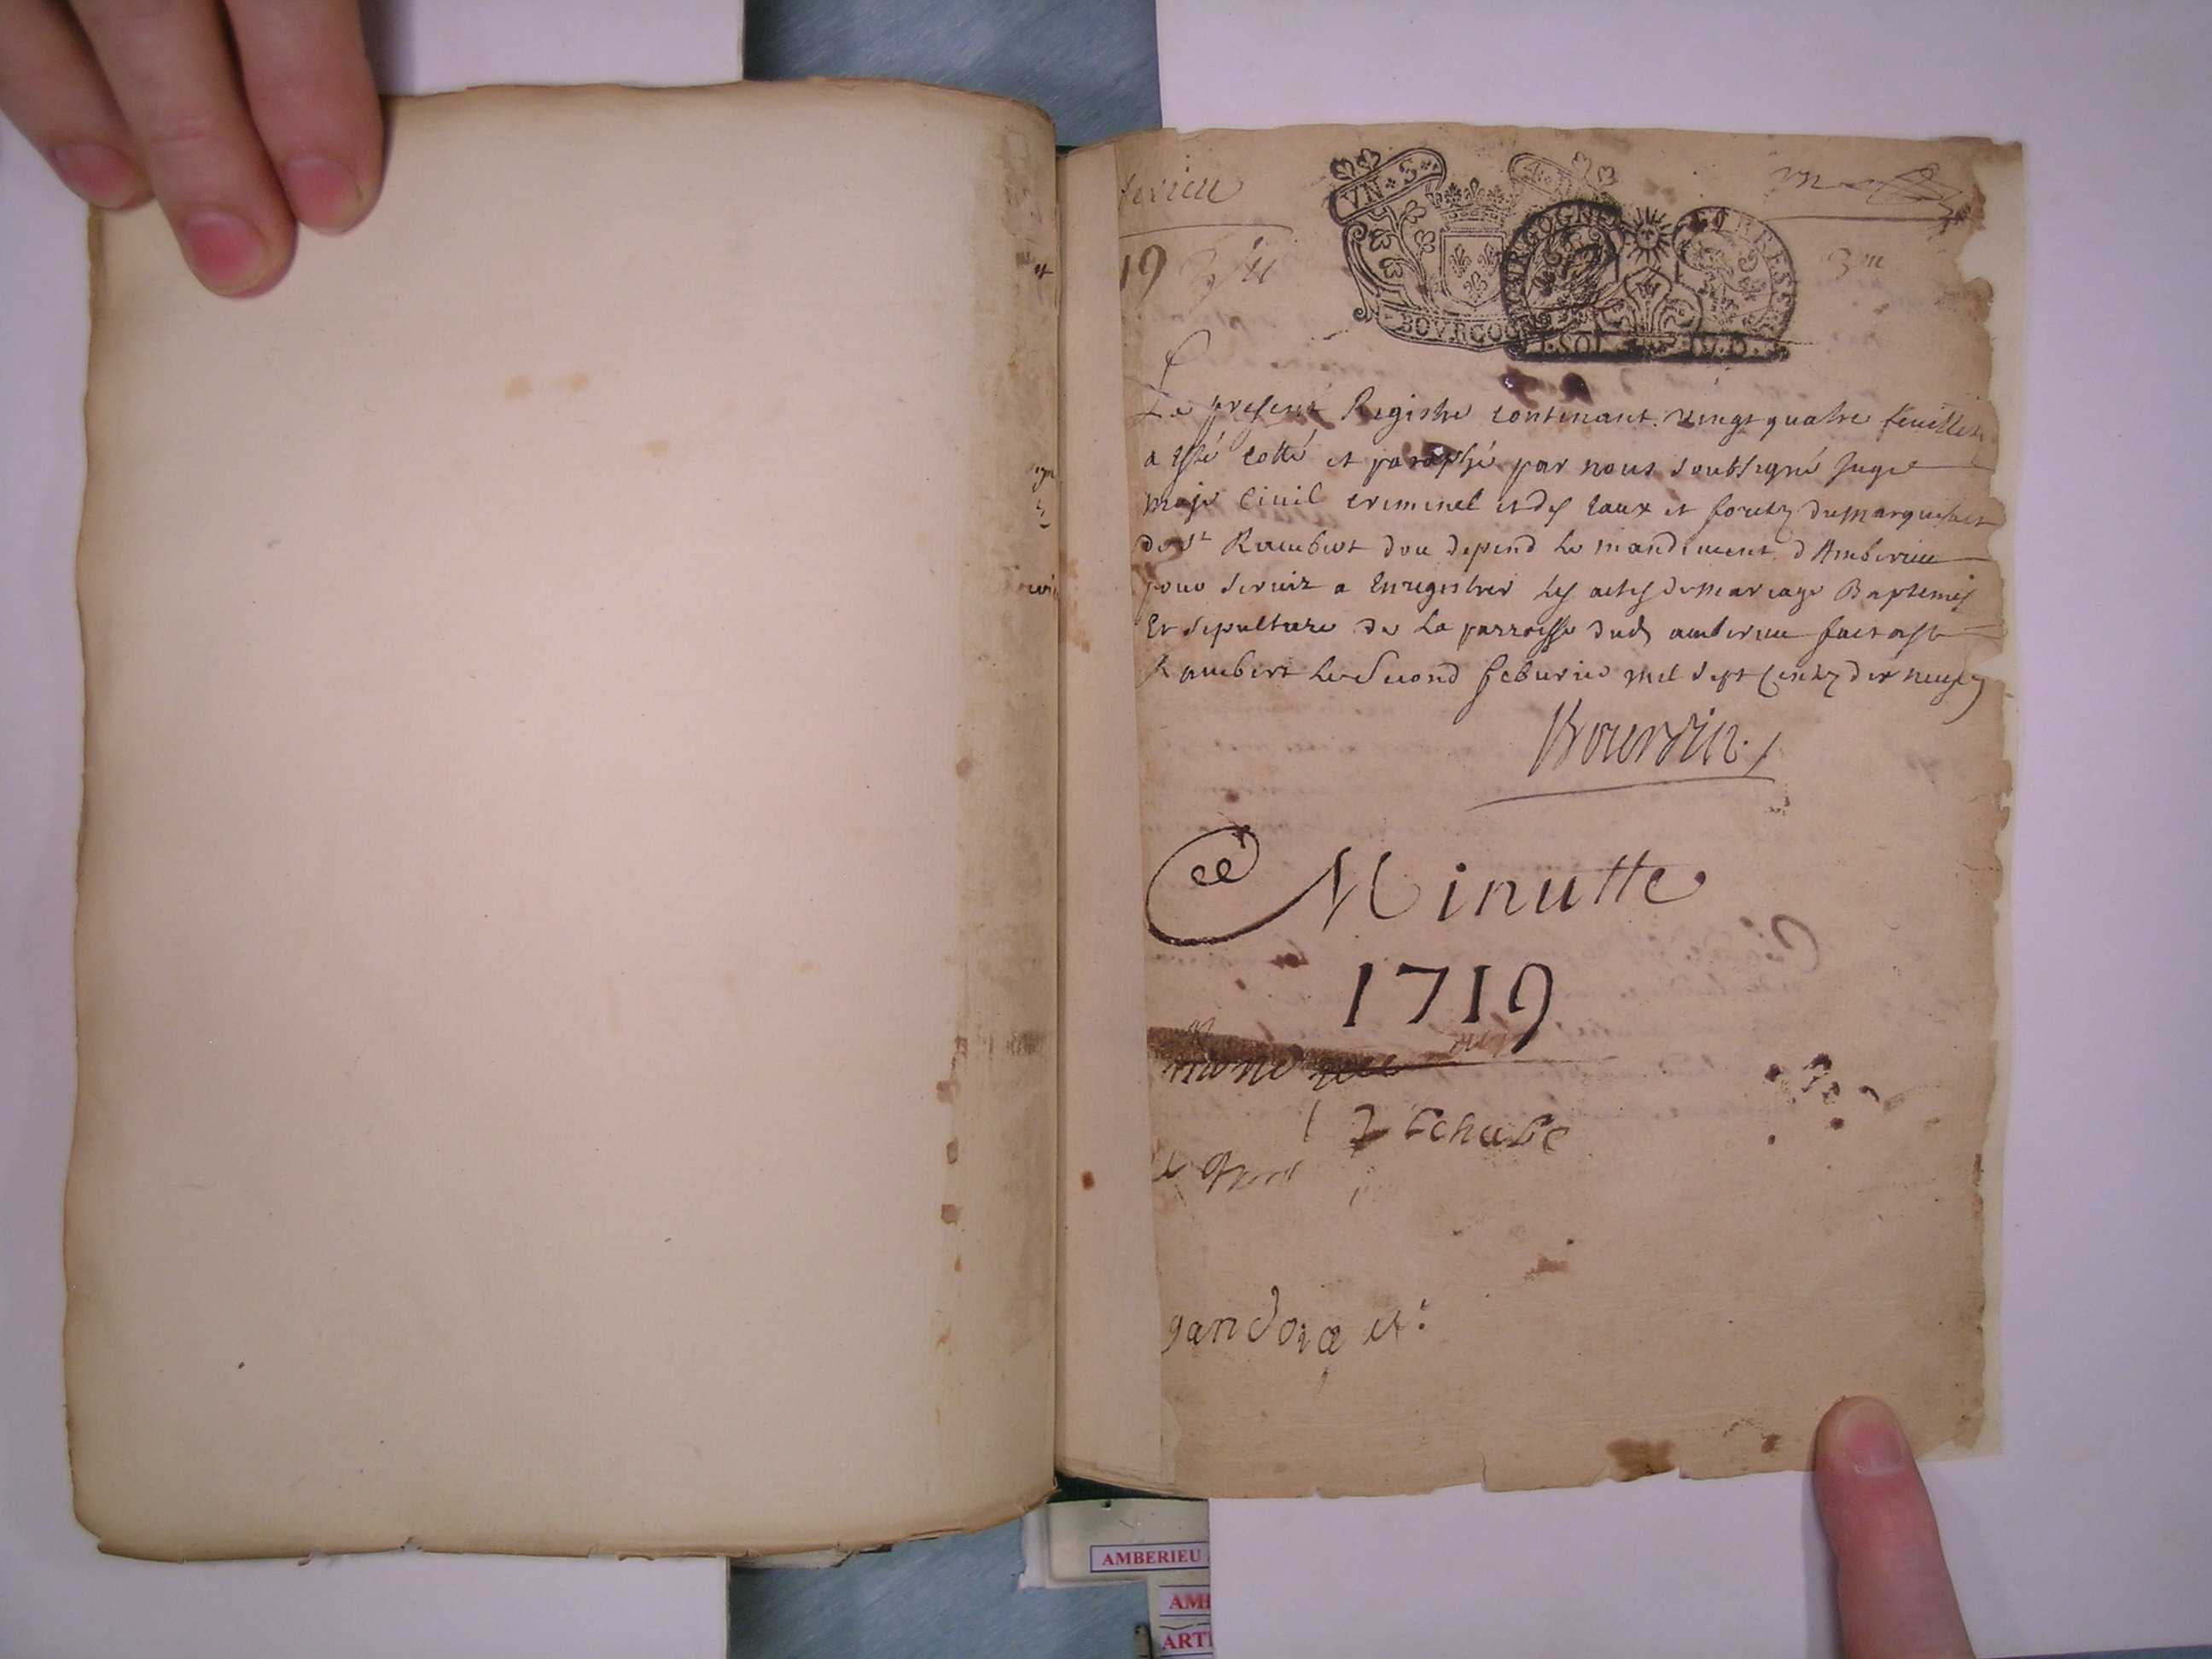 19
VN * S *
BOURGOGNE
BOVRGOGN
1. SOL. IV. D.
Le present Registre contenant vingt quatre feuillets
a esté cotté et paraphé par nous soubsigné Juge
Maje Civil criminel et des Eaux et forets du marquisat
de st Rambert dou depend le mandement d'Amberieu
pour servir a Enregistrer les actes de mariage Baptemes
Et sepulture de La parroisse dud amberieu fait a st
Rambert le second feburier mil sept Cents dix neuf
Bourdin
Minutte
1719
gandoiæ et
AMBERIEU